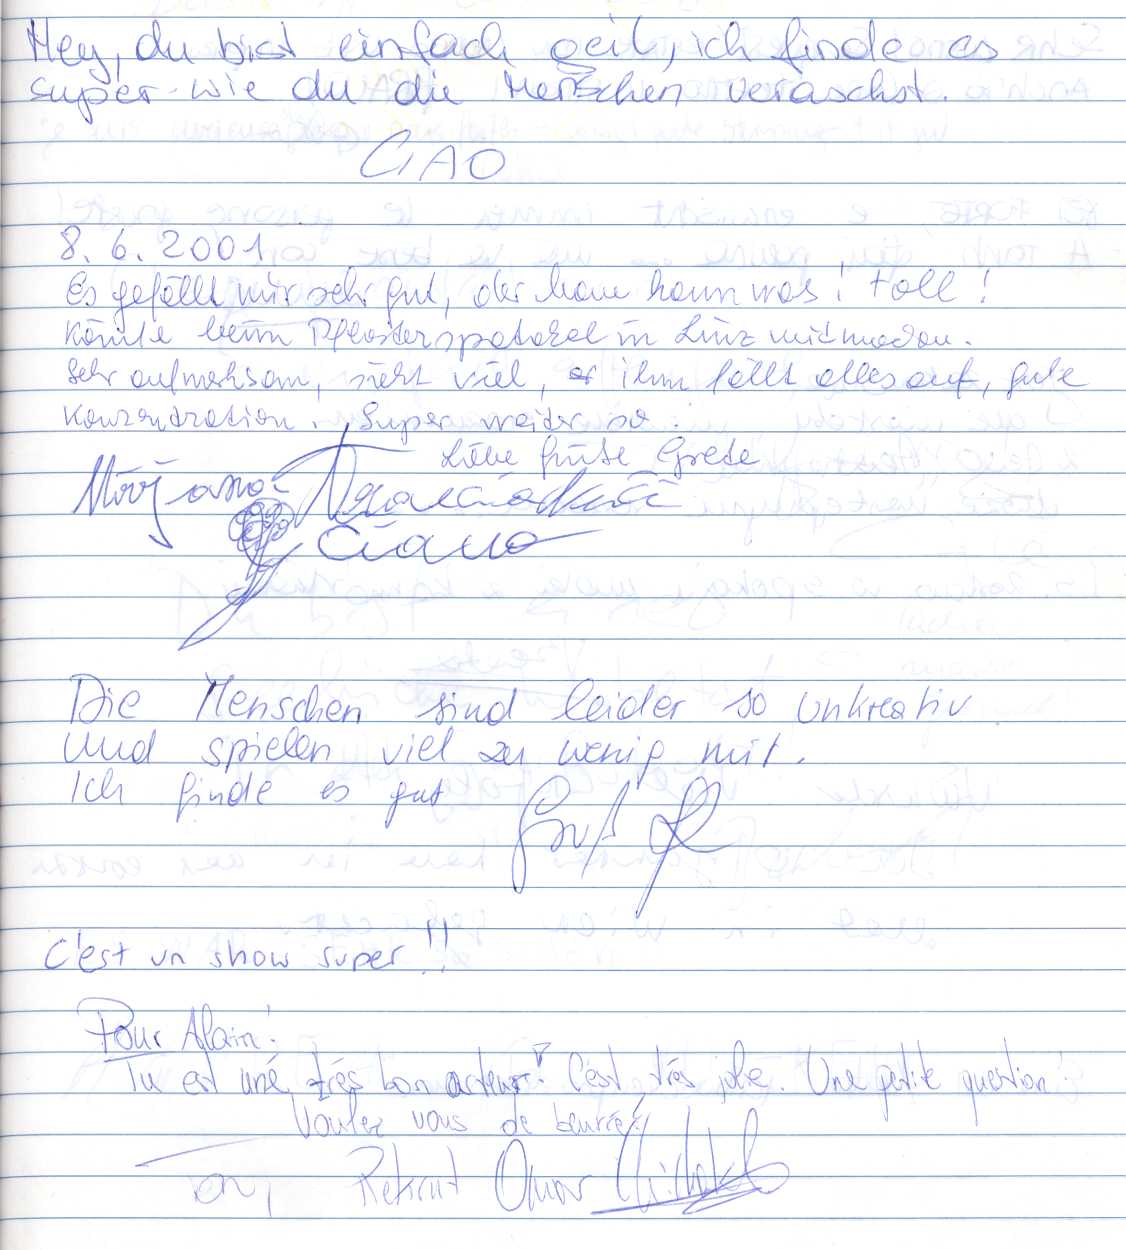 Hey, du bist einfach geil, ich finde es
super wie du die Menschen veraschst.
CIAO
8.6.2001
Es gefällt mir sehr gut, der Mann kann was! Toll!
Könnte beim Pflasterspektakel in Linz mitmachen.
Sehr aufmerksam, sieht viel, ihm fällt alles auf, gute
Konzentration. Super weiter so.
Liebe Grüße Grete
Ciao
Die Menschen sind leider so unkreativ
und spielen viel zu wenig mit.
Ich finde es gut
Gruß
C'est un show super!!
Pour Alain:
Tu est une très bon acteur! C'est très jolie. Une petite question:
Voulez vous de beurre?
Omar